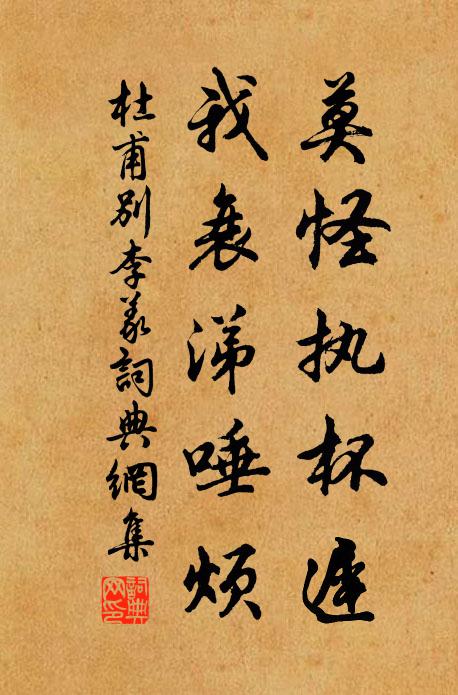 莫怪执杯遲
我衰涕唾烦
杜甫别李義詞典網集
詞典网印